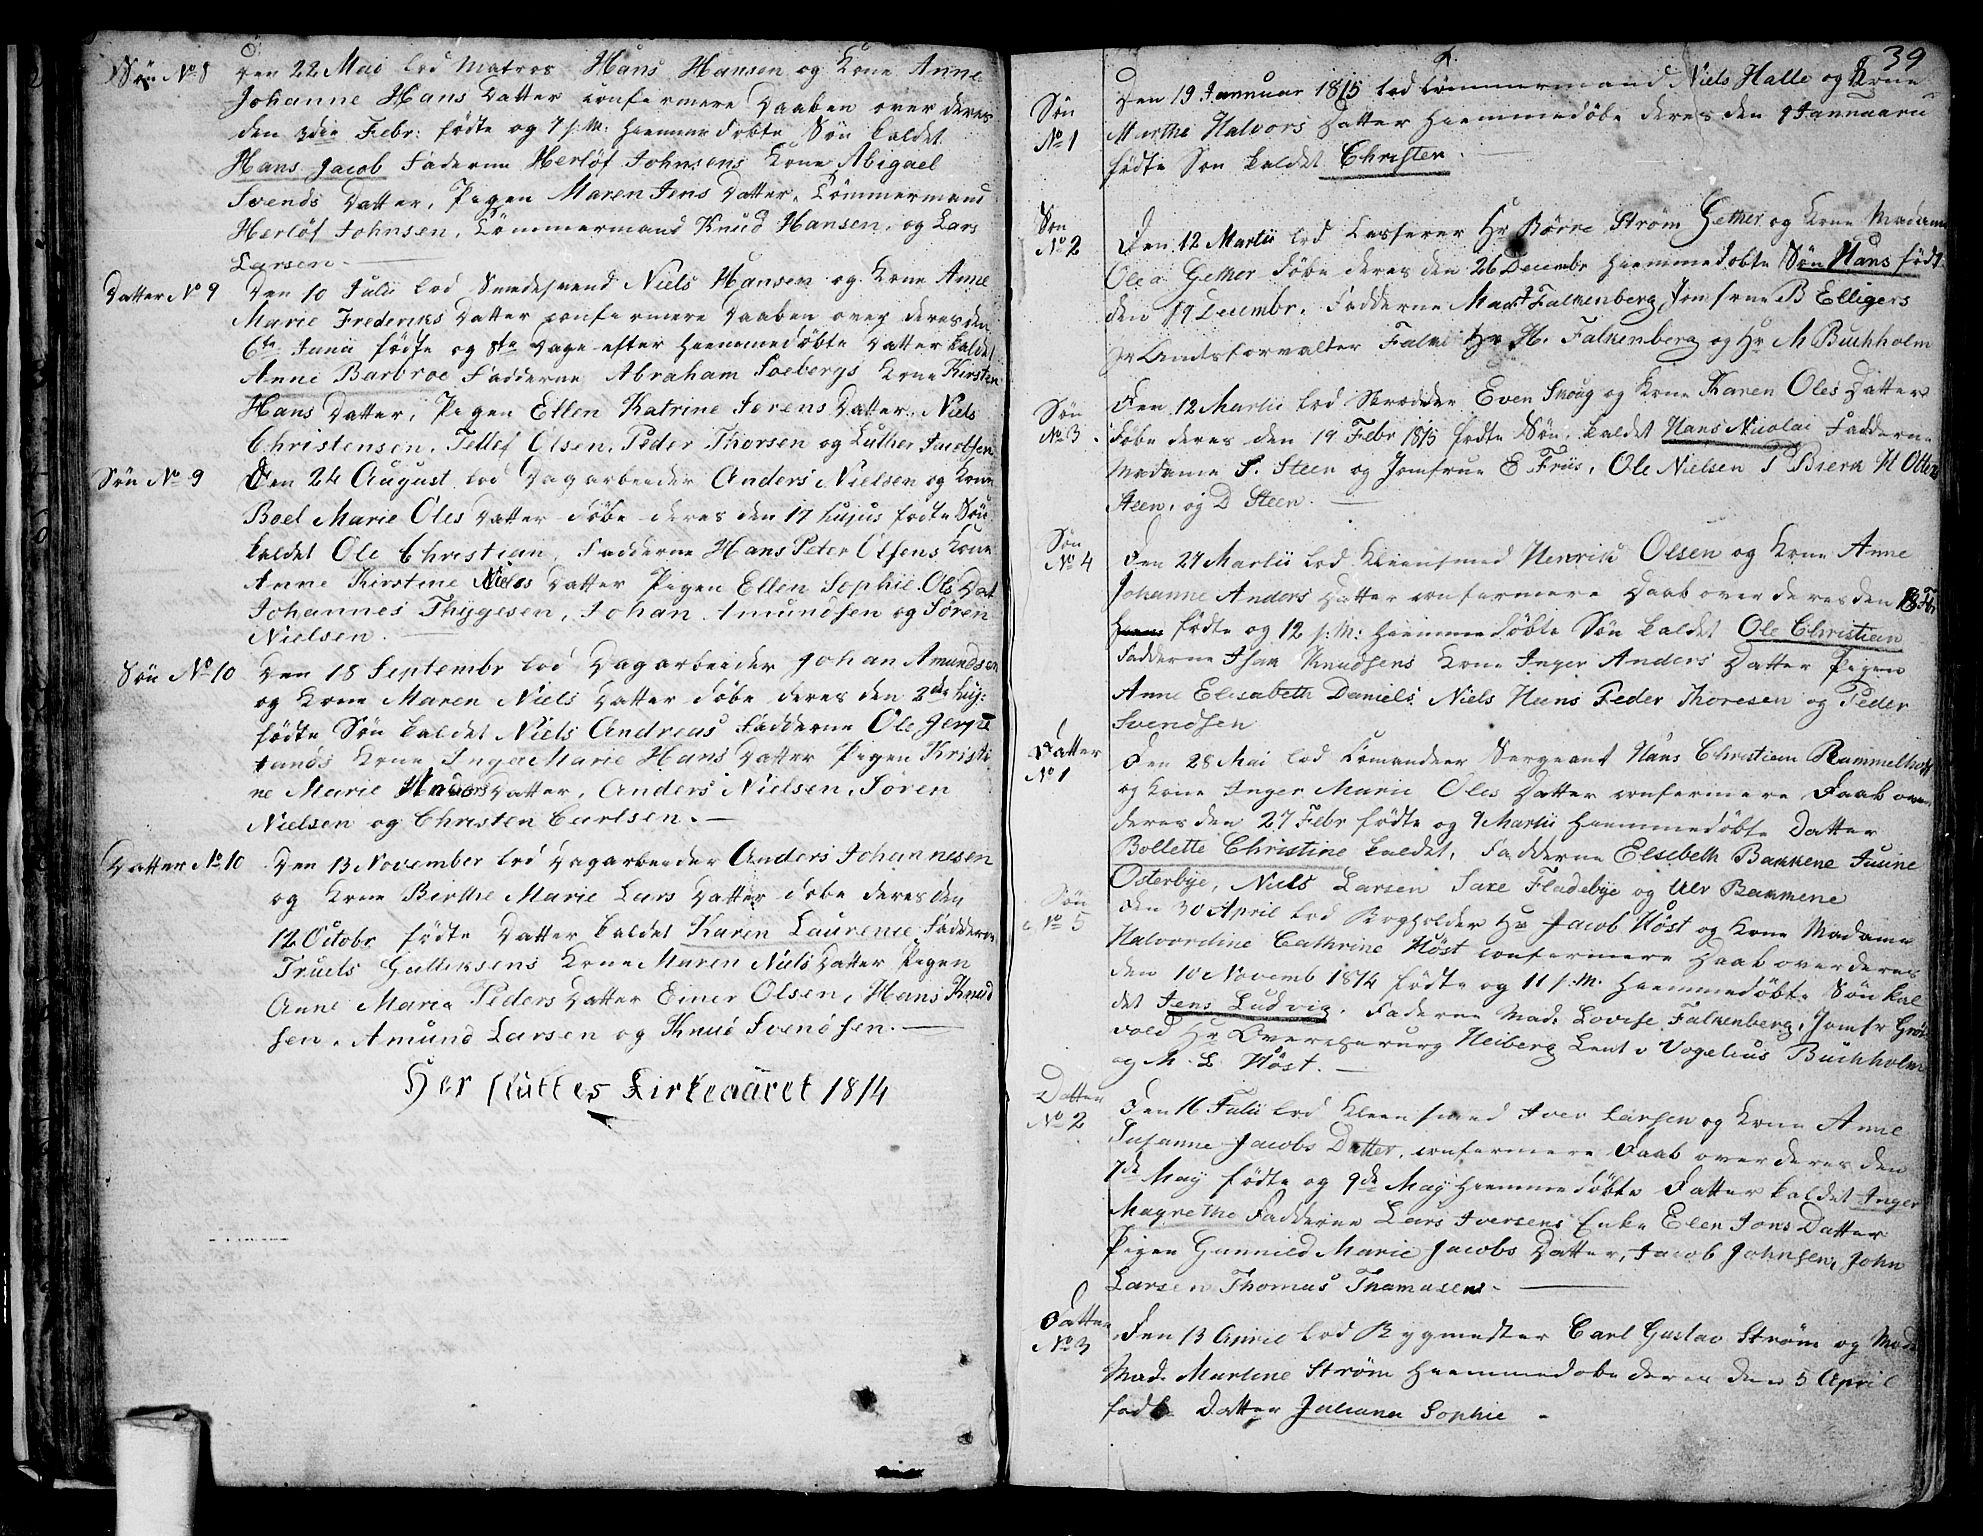 Søn No 8
Den 22 Mai lod Matros Hans Hansen og Kone Anne
Johanne Hans Datter confermere Daaben over deres
den 3die Febr: fødte og 7 s: M: hiemmedøbte Søn kaldet
Hans Jacob Fadderne Herløf Johnsens Kone Abigael
Svends Datter, Pigen Maren Jens Datter, Tømmermand
Herløf Johnsen, Tømmermand Knud Hansen, og Lars
Larsen.
Datter No 9
Den 10 Julii lod Smedesvend Niels Hansen og Kone Anne
Marie Frederiks Datter confermere Daaben over deres den
6te Junii fødte og 8te Dage efter hiemmedøbte Datter kaldet
Anne Barbroe Fadderne Abraham Soebergs Kone Kirsten
Hans Datter, Pigen Ellen Katrine Sørens Datter, Niels
Christensen, Tellef Olsen, Peder Thorsen og Luther Jacobsen
Søn No 9
Den 24 August lod Dagarbeider Anders Nielsen og Kone
Boel Marie Oles Datter døbe deres den 17 hujus fødte Søn
kaldet Ole Christian, Fadderne Hans Peter Olsens Kone
Anne Kirstine Niels Datter Pigen Ellen Sophie Ols Dat
Johannes Thygesen, Johan Amundsen og Søren
Nielsen.
Søn No 10
Den 18 Septembr lod Dagarbeider Johan Amundsen
og Kone Maren Niels Datter døbe deres den 2den huj:
fødte Søn kaldet Niels Andreas Fadderne Ole Jerpe
tands Kone Inger Marie Hans Datter Pigen Kristi
ne Marie Datter, Anders Nielsen, Søren
Nielsen og Christen Carlsen.
Datter No 10
Den 13 November lod Dagarbeider Anders Johannesen
og Kone Berthe Marie Lars Datter døbe deres den
12 Octobr fødte Datter kaldet Karen Laurence Fadderne
Truels Gulliksens Kone Maren Niels Datter Pigen
Anne Maria Peders Datter Einer Olsen, Hans Knud
sen, Amund Larsen og Knud Svendsen.
Her sluttes Kirkeaaret 1814
39
Søn No 1
Den 19 Januar 1815 lod Tømmermand Niels Halle og Kone
Marthe Halvors Datter hiemmedøbe deres den 9 Januarii
fødte Søn kaldet Christen.
Søn No 2
Den 12 Martii lod Casserer Hr Børre Strøm Gether og Kone Madame
Olea Gether døbe deres den 26 Decembr hiemmedøbte Søn Hans født
den 19 Decembr. Fadderne Mad: Falkenberg, Jomfrue B Elligers
Hr Landsforvalter Falk Hr H. Falkenberg og Hr M Buchholm
Søn No 3
Den 12 Martii lod Skrædder Even Snoug og Kone Karen Oles Datter
døbe deres den 19 Febr 1815 fødte Søn, kaldet Hans Nicolai Fadderne
Madame S. Steen og Jomfrue E Friis, Ole Nielsen P Bierk H Otte
Steen, og D Steen.
Søn No 4
Den 24 Martii lod Kleensmed Henrik Olsen og Kone Anne
Johanne Anders Datter confermere Daab over deres den
fødte og 12 s: M: hiemmedøbte Søn kaldet Ole Christian
Fadderne Isak Knudsens Kone Inger Anders Datter Pigen
Anne Elisabeth Daniels, Niels Hans Peder Thoresen og Peder
Svendsen
Datter No 1
Den 28 Mai lod Comandeer Sergeant Hans Christian Rammelhoff
og Kone Inger Marie Oles Datter confermere Daab over
deres den 27 Febr fødte og 9 Martii hiemmedøbte Datter
Bollette Christine kaldet, Fadderne Elsebeth Bakkene
Østerbye, Niels Larsen Saxe Fladebye og Ulv Bakkene
Søn No 5
Den 30 April lod Bogholder Hr Jacob Høst og Kone Madame
Halvordine Cathrine Høst confermere Daab over deres
den 10 Novemb 1814 fødte og 11 s: M. hiemmedøbte Søn kal
det Jens Ludvig. Fadderne Mad. Lovise Falkenberg, Jomfr Grøn
vold Hr Overcherurg Heiberg Leut v Vogelius Buchholm
og M. L Høst.
Datter No 2
Den 16 Julii lod Kleensmed Iver Larsen og Kone Anne
Susanne Jacobs Datter, confermere Daab over deres den
7de May fødte og 9de May hiemmedøbte Datter kaldet Inger
Magrethe Fadderne Lars Iversens Enke Elen Jons Datter
Pigen Gunnild Marie Jacobs Datter, Jacob Johnsen, John
Larsen Thomas Thamasen.
Datter No 3
Den 13 April lod Bygmester Carl Gustav Strøm og
Mad. Martine Strøm hiemmedøbe deres den 5 April
født Datter Juliana Sophie.